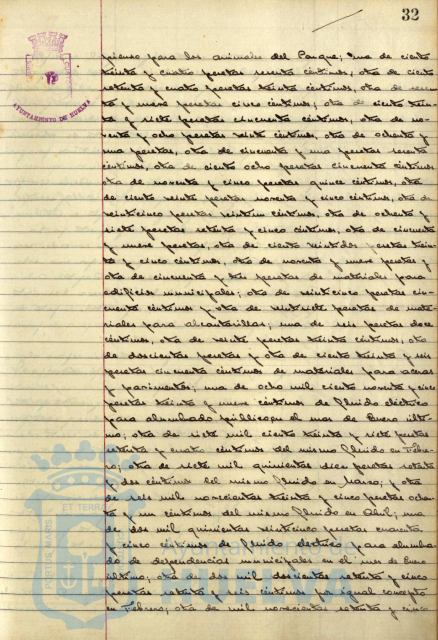 32
AYUNTAMIENTO DE HUELVA
pienso para los animales del Parque; una de ciento
treinta y cuatro pesetas sesenta céntimos, otra de ciento
setenta y cuatro pesetas treinta céntimos, otra de sesen
ta y nueve pesetas cinco céntimos; otra de ciento trein
ta y siete pesetas cincuenta céntimos, otra de no-
venta y ocho pesetas siete céntimos, otra de ochenta y
una pesetas, otra de cincuenta y una pesetas sesenta
céntimos, otra de ciento ocho pesetas cincuenta céntimos
otra de noventa y cinco pesetas quince céntimos, otra
de ciento veinte pesetas noventa y cinco céntimos, otra de
veinticinco pesetas céntimos, otra de ochenta y
siete pesetas setenta y cinco céntimos, otra de cincuenta
y nueve pesetas, otra de ciento veintidos pesetas trein
ta y cinco céntimos, otra de noventa y nueve pesetas y
otra de cincuenta y tres pesetas de materiales para
edificios municipales; otra de veinticinco pesetas cin-
cuenta céntimos y otra de veintisiete pesetas de mate-
riales para alcantarillas; una de seis pesetas doce
céntimos, otra de veinte pesetas treinta céntimos, otra
de doscientas pesetas y otra de ciento treinta y seis
pesetas cincuenta céntimos de materiales para aceras
y pavimentos; una de ocho mil ciento noventa y cinco
pesetas treinta y nueve céntimos de fluido eléctrico
para alumbrado público en el mes de Enero últi-
mo; otra de siete mil ciento treinta y siete pesetas
setenta y cuatro céntimos del mismo fluido en Febre-
ro; otra de siete mil quinientas diez pesetas setenta
y dos céntimos del mismo fluido en Marzo; y otra
de seis mil novecientas treinta y cinco pesetas ochen
ta y un céntimos del mismo fluido en Abril; una
de dos mil quinientas veinticinco pesetas cuarenta
y cinco céntimos de fluido eléctrico para alumbra-
do de dependencias municipales en el mes de Enero
último; otra de dos mil doscientas setenta y cinco
pesetas setenta y seis céntimos por igual concepto
en Febrero; otra de mil novecientas setenta y cinco